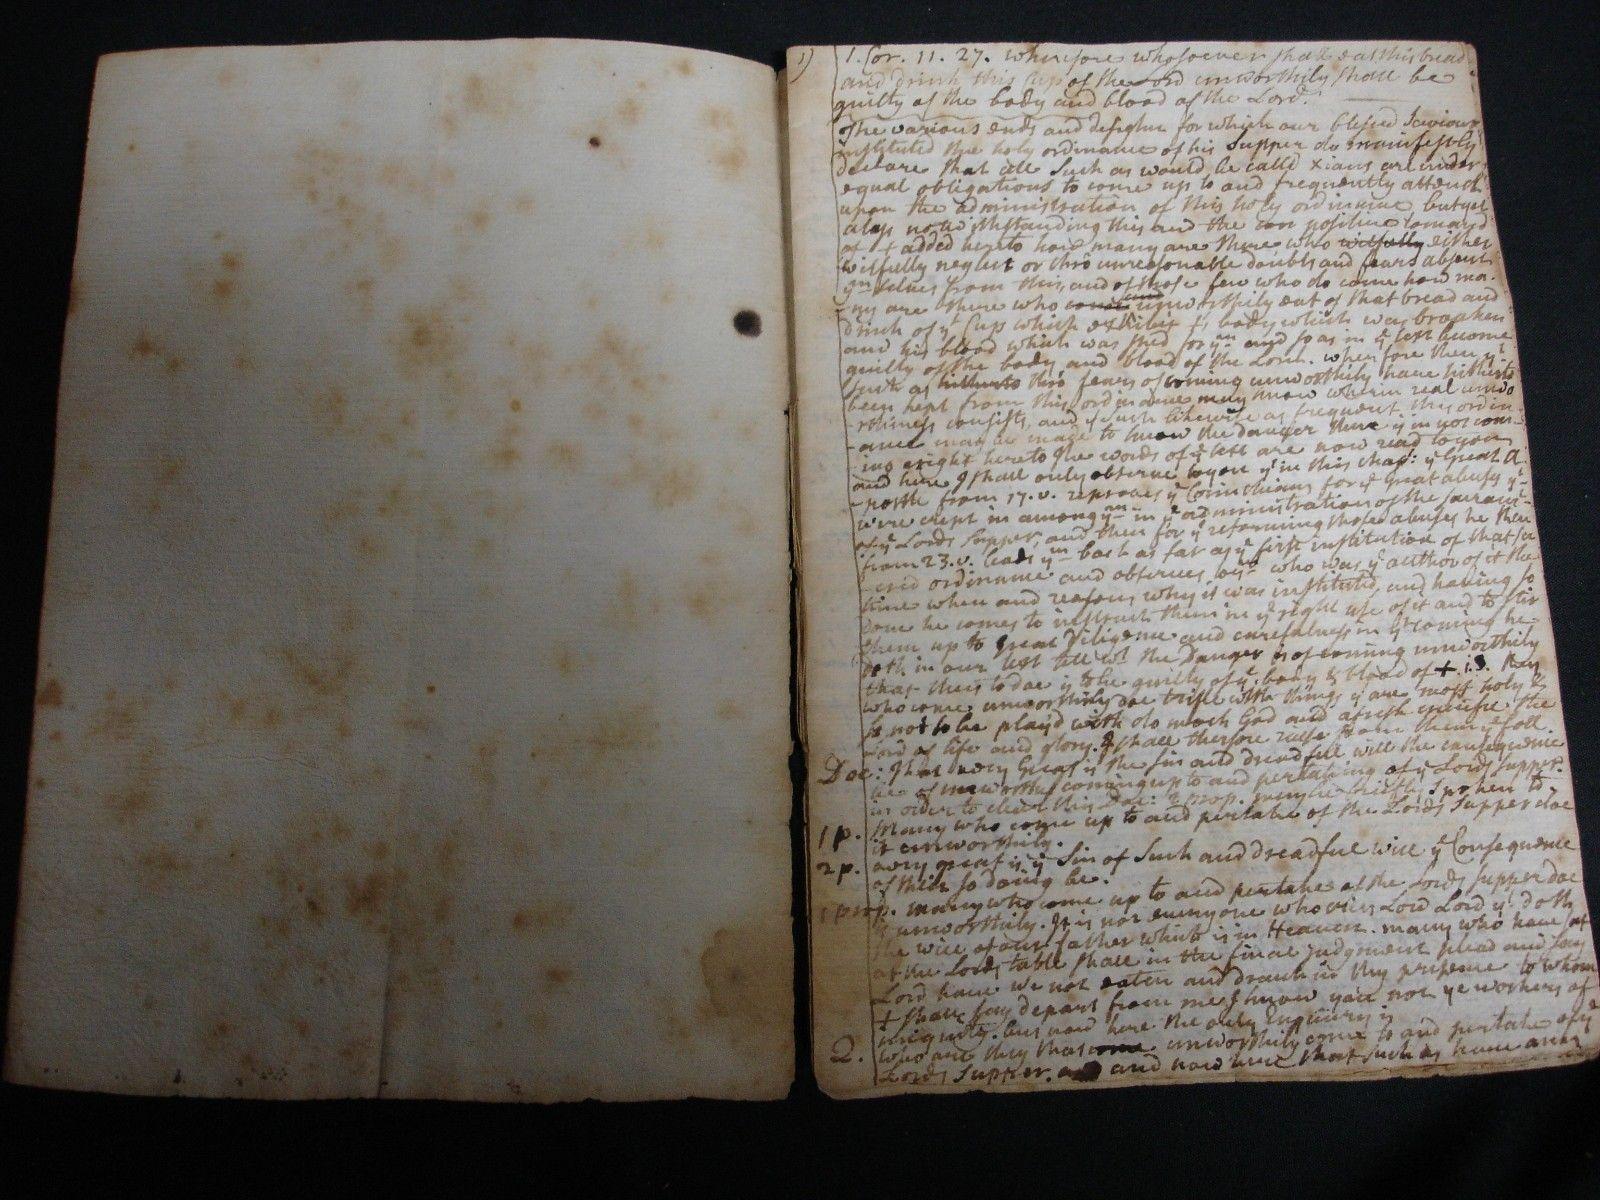 1) 1. Cor. 11. 27. wherefore whosoever shall eat this bread
and drink this cup of the Lord unworthily shall be
guilty of the body and blood of the Lord.
The various ends and designs for which our blessed Saviour
instituted the holy ordinance of his Supper do manifestly
declare that all such as would be calld Xians are under
equal obligations to come up to and frequently attend
upon the administration of this holy ordinance but yet
alass notwithstanding this and the positive comand
of + added hereto how many are there who wilfully either
wilfully neglect or thrô unreasonable doubts and fears absent
ymselves from this, and of those few who do come how ma-
ny are there who unworthily eat of that bread and
drink of yt Cup which exhibit +s body which was broaken
and his blood which was shed for ym and so as in ye text become
guilty of the body and blood of the Lord. wherefore then yt
such as hitherto thrô fears of coming unworthily have hitherto
been kept from this ordinance may know wherin real unwo
-rthiness consists, and such likewise as frequent this ordin-
-ance may be made to know the danger there is in not com-
-ing aright hereto the words of ye text are now read to you
and here I shall only observe to you yt in this chap: ye Great A
-postle from 17. v. reproves ye Corinthians for ye Great abuses yt
were crept in among ym in ye administration of the sacram-
of ye Lords Supper and then for ye reforming those abuses he then
from 23. v. leads ym back as far as ye first institution of that sa
-cred ordinance and observes who was ye author of it the
time when and reasons why it was instituted, and having so
done he comes to instruct them in ye right use of it and to stir
them up to great Diligence and carefulness in yr coming he
doth in our text tell wt the Danger is of coming unworthily
that thus to doe is to be guilty of ye body & blood of + i.e. they
who come unworthily doe trifle with things yt are most holy &
is not to be playd with do mock God and afresh crucifie the
Lord of life and glory. I shall therfore raise from them ye foll.
Doc: That very Great is the sin and dreadfull will the consequence
be of unworthy coming up to and pertaking of ye Lords Supper.
in order to clear this Doc: 2 prop. may be briefly spoken to
1 p. Many who come up to and pertake of the Lords Supper doe
it unworthily.
2 p. very great is ye Sin of such and dreadful will ye Consequence
of their so doing be.
1 prop. many who come up to and pertake of the Lords supper doe
it unworthily. It is not every one who cries Lord Lord yt doth
the will of our father which is in Heaven. many who have sat
at the Lords table shall in the final judgment plead and say
Lord have we not eaten and drank in thy presence to whom
+ shall say depart from me I know you not ye workers of
iniquity. but now here the only Enquiry is
Q. who are they that unworthily come to and pertake of ye
Lords Supper. and now here that such as have